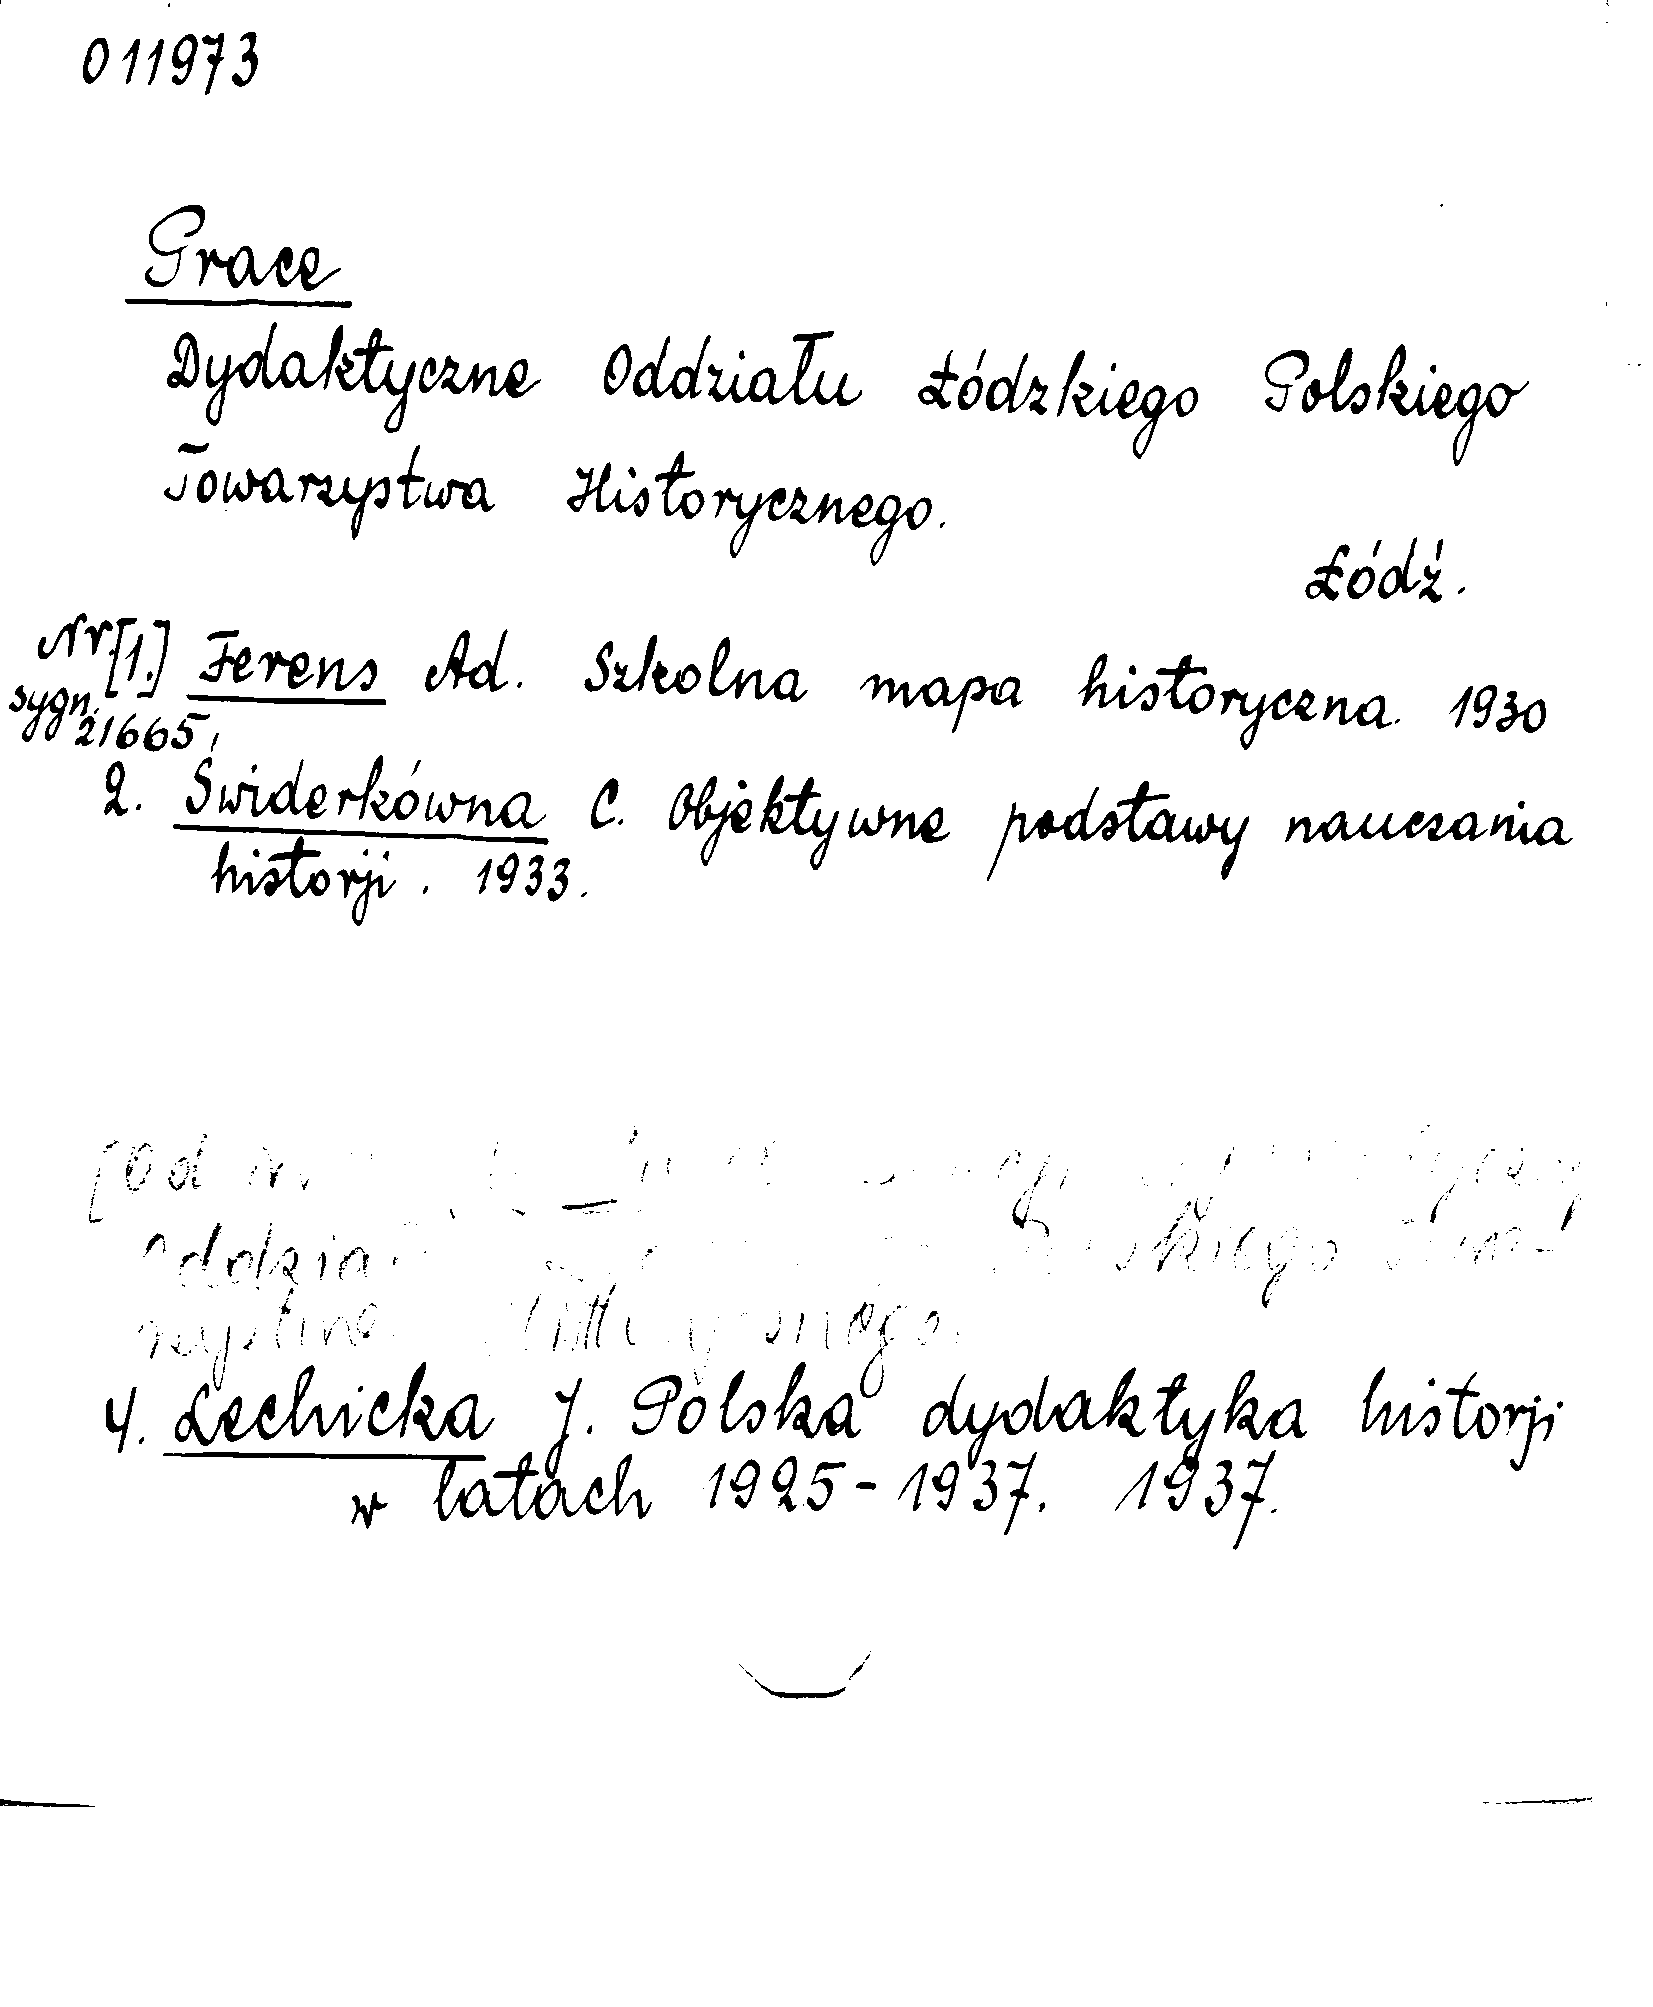 011973
Prace
Dydaktyczne Oddziału Łódzkiego Polskiego
Towarzystwa Historycznego.
Łódź.
Nr [1.] Ferens Ad. Szkolna mapa historyczna. 1930
sygn. 21665
2. Świderkówna C. Objektywne podstawy nauczania
historji. 1933.
[Od
Historycznego.
4. Lechicka J. Polska dydaktyka historji
w latach 1925-1937. 1937.